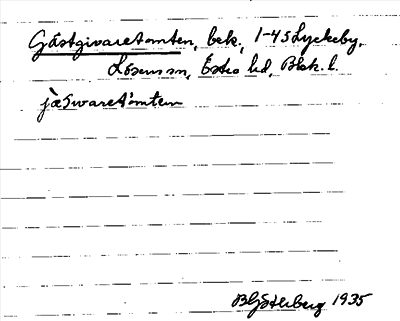 Gästgivaretomten, bek., 1-45 Lyckeby,
Lösens sn, Östra hd, Blek. l.
jäsvaretòmten
B Göterberg 1935